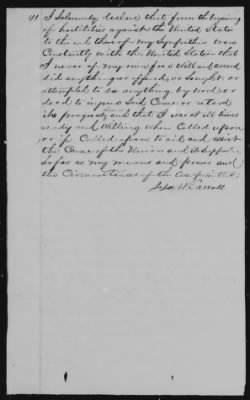 41 I Solemnly declare that from the beginning
of hostilities against the United States
to the end thereof my Sympathies were
Constantly with the United States that
I never of my own free will and accord
did anything or offered, or Sought, or
attempted to do anything, by word, or
deed to injure Said Cause or retard
its progress, and that I was at all times
ready and Willing when Called upon
or if Called upon to aid and assist
the Cause of the Union and its Supporters
So far as my means and power and
the Circumstances of the Case permitted
Carroll